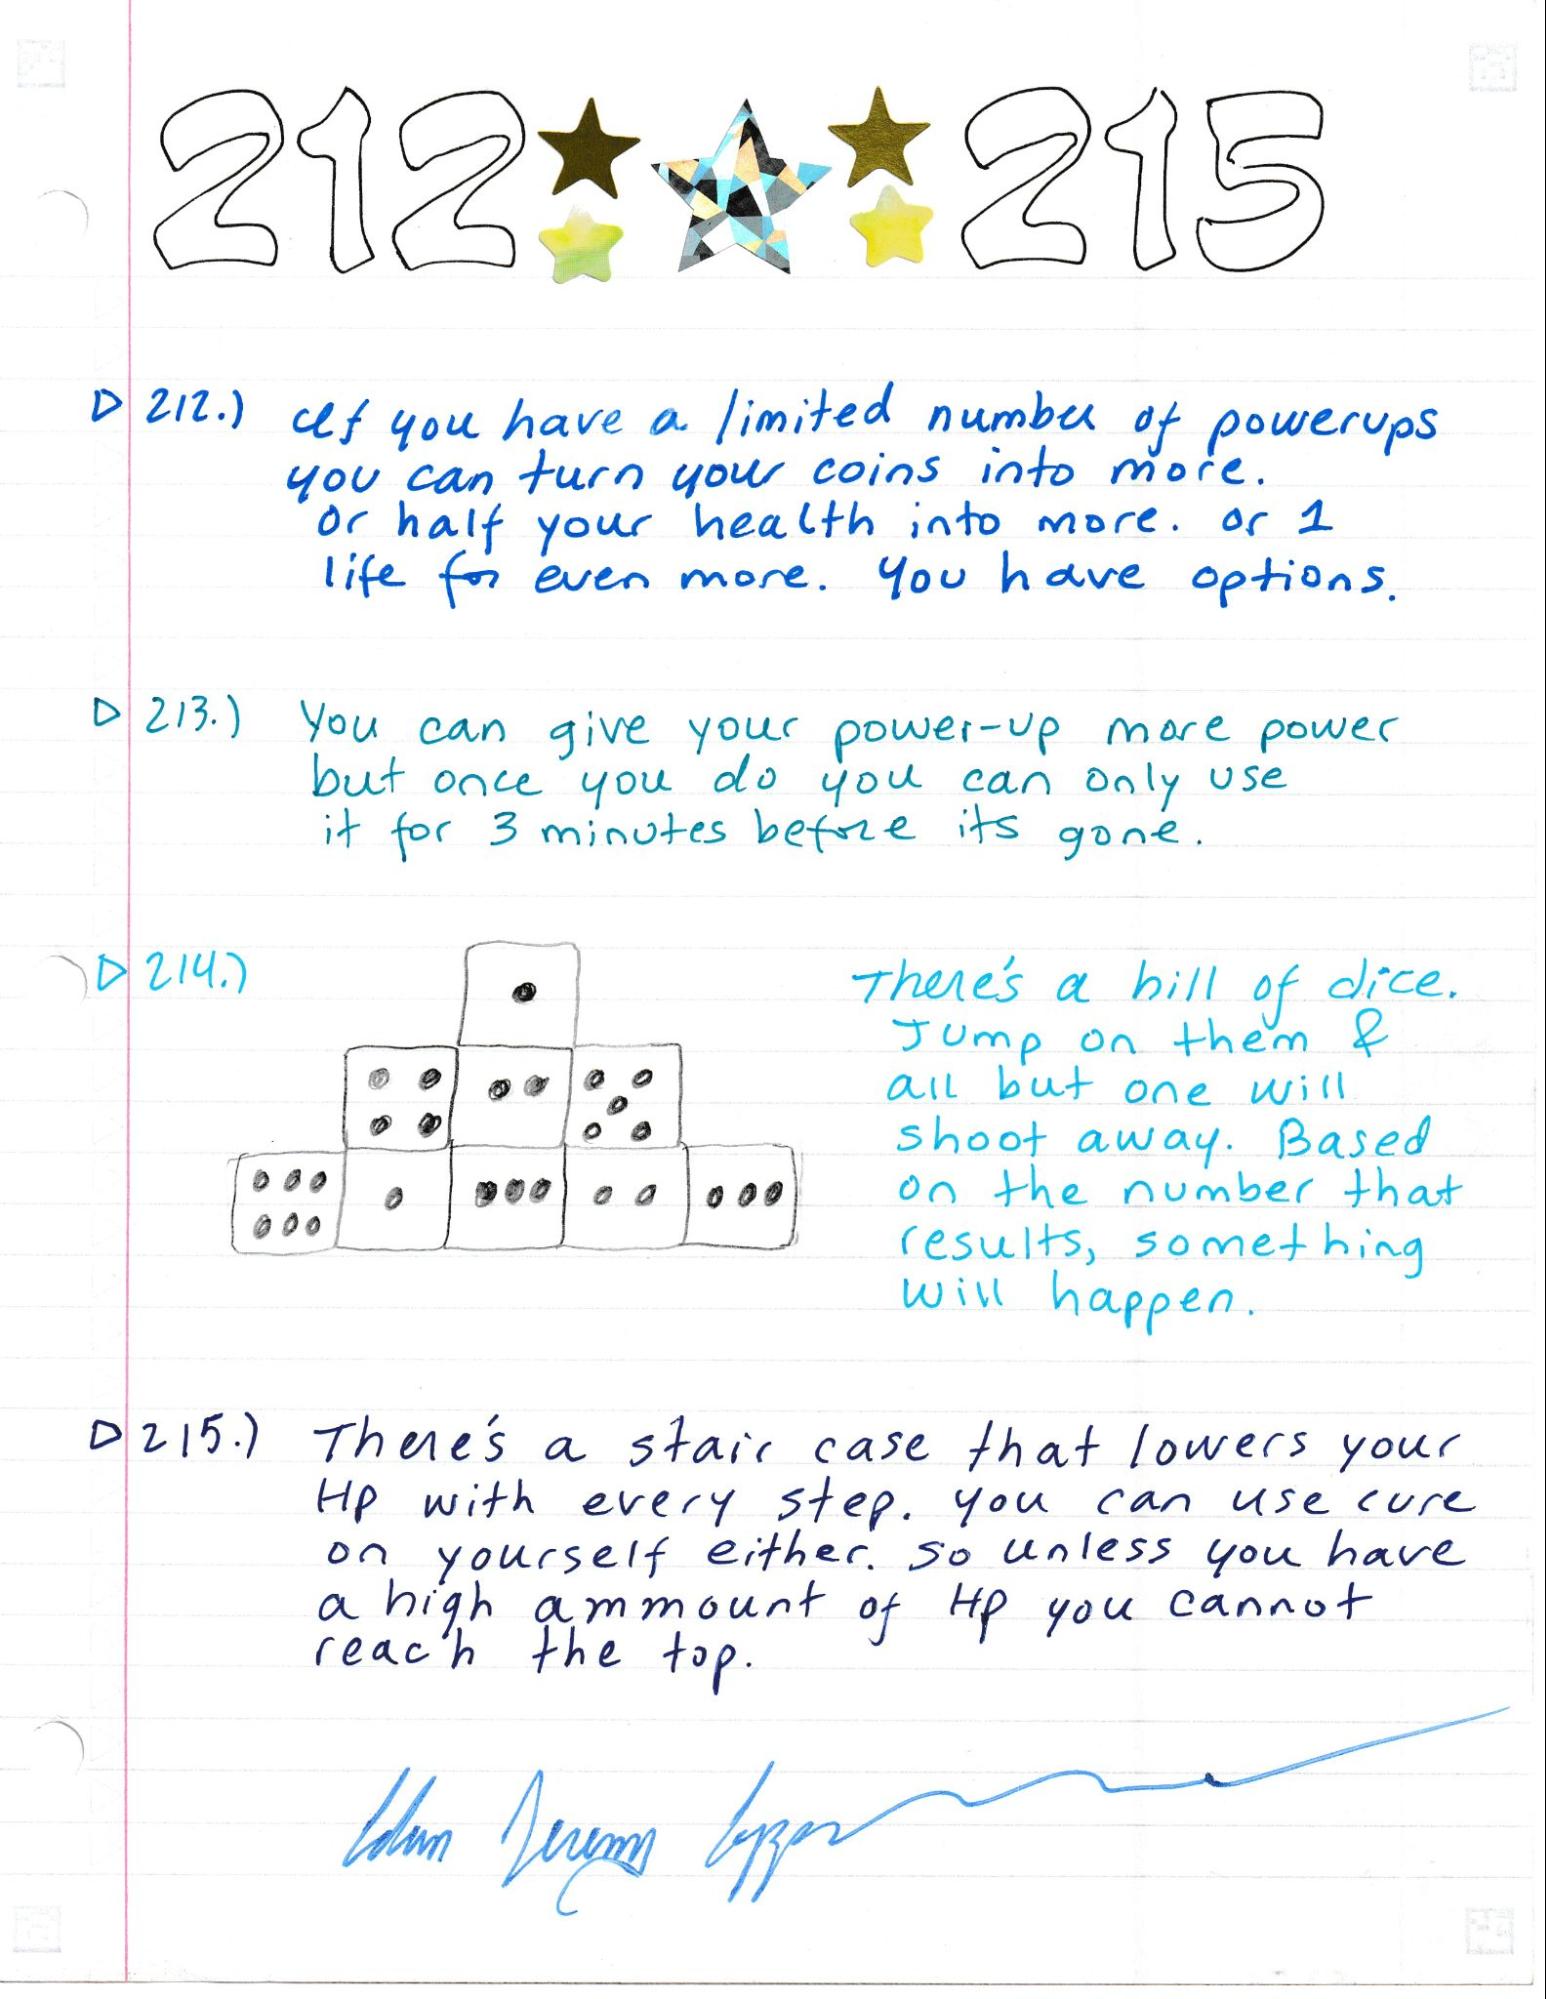 212 215
▷ 212.) If you have a limited number of powerups
you can turn your coins into more.
or half your health into more. or 1
life for even more. You have options.
▷ 213.) You can give your power-up more power
but once you do you can only use
it for 3 minutes before its gone.
▷ 214.) There's a hill of dice.
Jump on them &
all but one will
shoot away. Based
on the number that
results, something
will happen.
▷ 215.) There's a stair case that lowers your
HP with every step. you can use cure
on yourself either. so unless you have
a high ammount of HP you cannot
reach the top.
Adam Jeremy